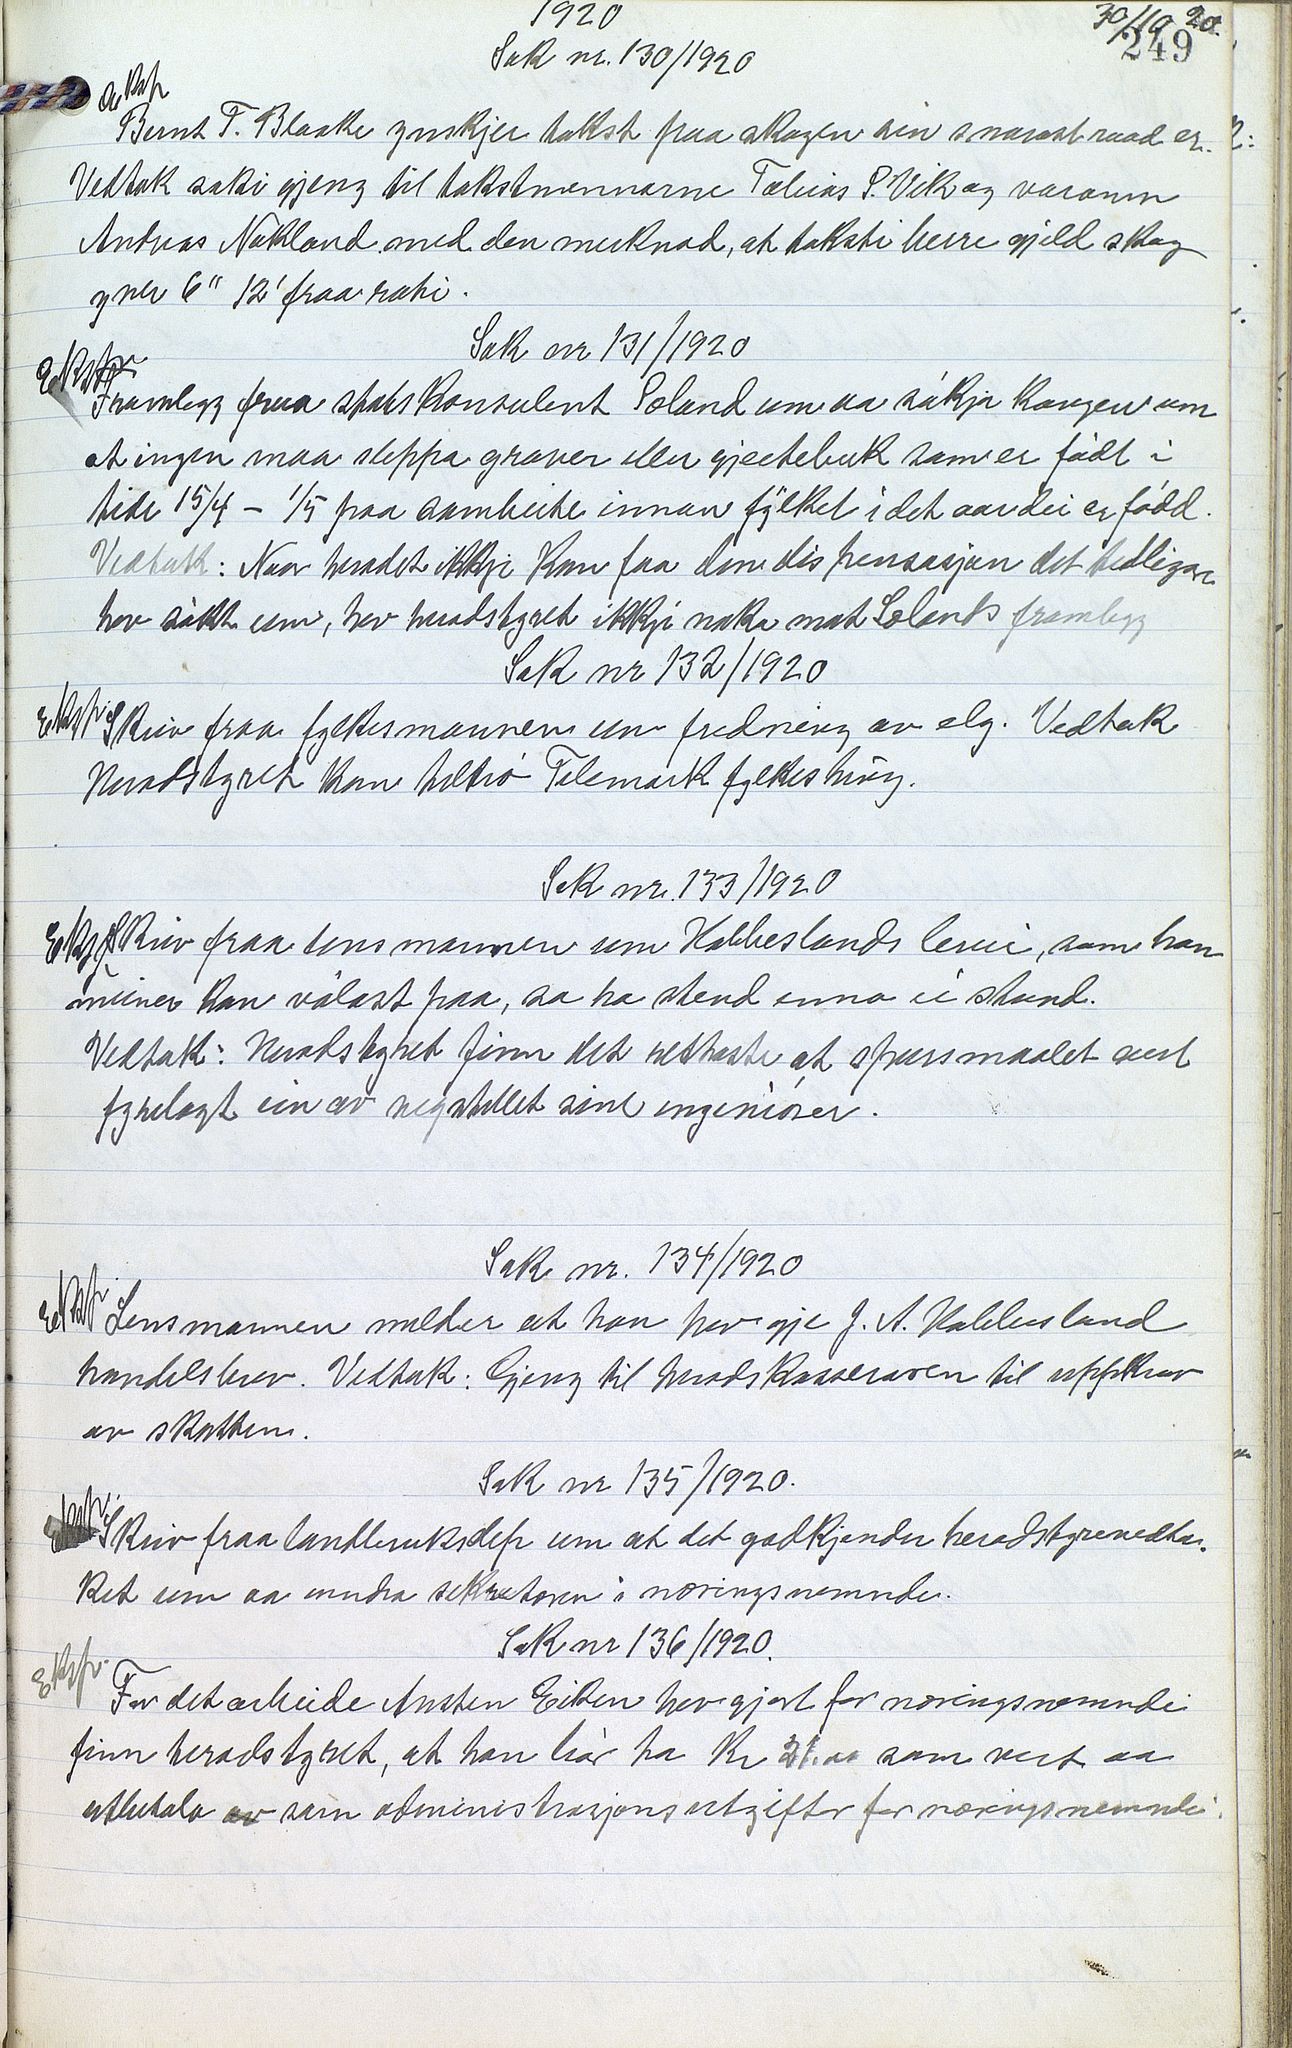 1920
30/10 20.
249
Sak nr. 130/1920
Eksp
Bernt T. Blaake ynskjer takst paa skogen sin snarast raad er.
Vedtak saki gjeng til takstmennarne Tobias S. Vik og varamn
Andreas Nakland med den merknad, at taksti berre gjeld skog
yver 6" 12' fraa roti.
Sak nr 131/1920
Ekspr
Framlegg fraa statskonsulent Soland um aa søkja Kongen um
at ingen maa sleppa graver eller gjeitebuk som er födt i
tidi 15/4 – 1/5 paa sambeite innan fylket i det aar dei er född.
Vedtak: Naar heradet ikkje kan faa den dispensasjon det tidligare
hev søkt um, hev heradstyret ikkje noko mot Solands framlegg
Sak nr 132/1920
Ekspr.
Skriv fraa fylkesmannen um fredning av elg. Vedtak
Heradstyret kan tiltrø Telemark fylkesting.
Sak nr. 133/1920
Ekspr
Skriv fraa lensmannen um Hobbeslands brui, som han
meiner kan vølast paa, so ho stend enno ei stund.
Vedtak: Heradstyret finn det rettaste at spursmaalet vert
fyrelagt ein av vegstellet sine ingeniörer.
Sak nr. 134/1920
Ekspr.
Lensmannen melder at han hev gje J. A. Hobbesland
handelsbrev. Vedtak: Gjeng til heradskasseraren til uppkrav
av skatten.
Sak nr 135/1920.
Ekspr.
Skriv fraa landbruksdep um at det godkjender heradstyrevedta-
ket um aa endra sekretæren i næringsnemndi.
Sak nr 136/1920.
Ekspr.
For det arbeide Austen Eiken hev gjort for næringsnemndi
finn heradstyret, at han bör ha Kr som vert aa
utbetala av som administrasjonsutgifter for næringsnemndi.